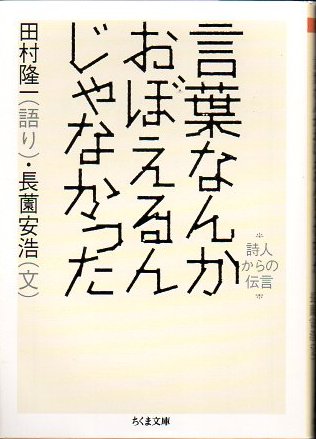 言葉なんか
おぼえるん
じゃなかった
＊詩人
からの
伝言＊
田村隆一(語り)・長薗安浩(文)
ちくま文庫